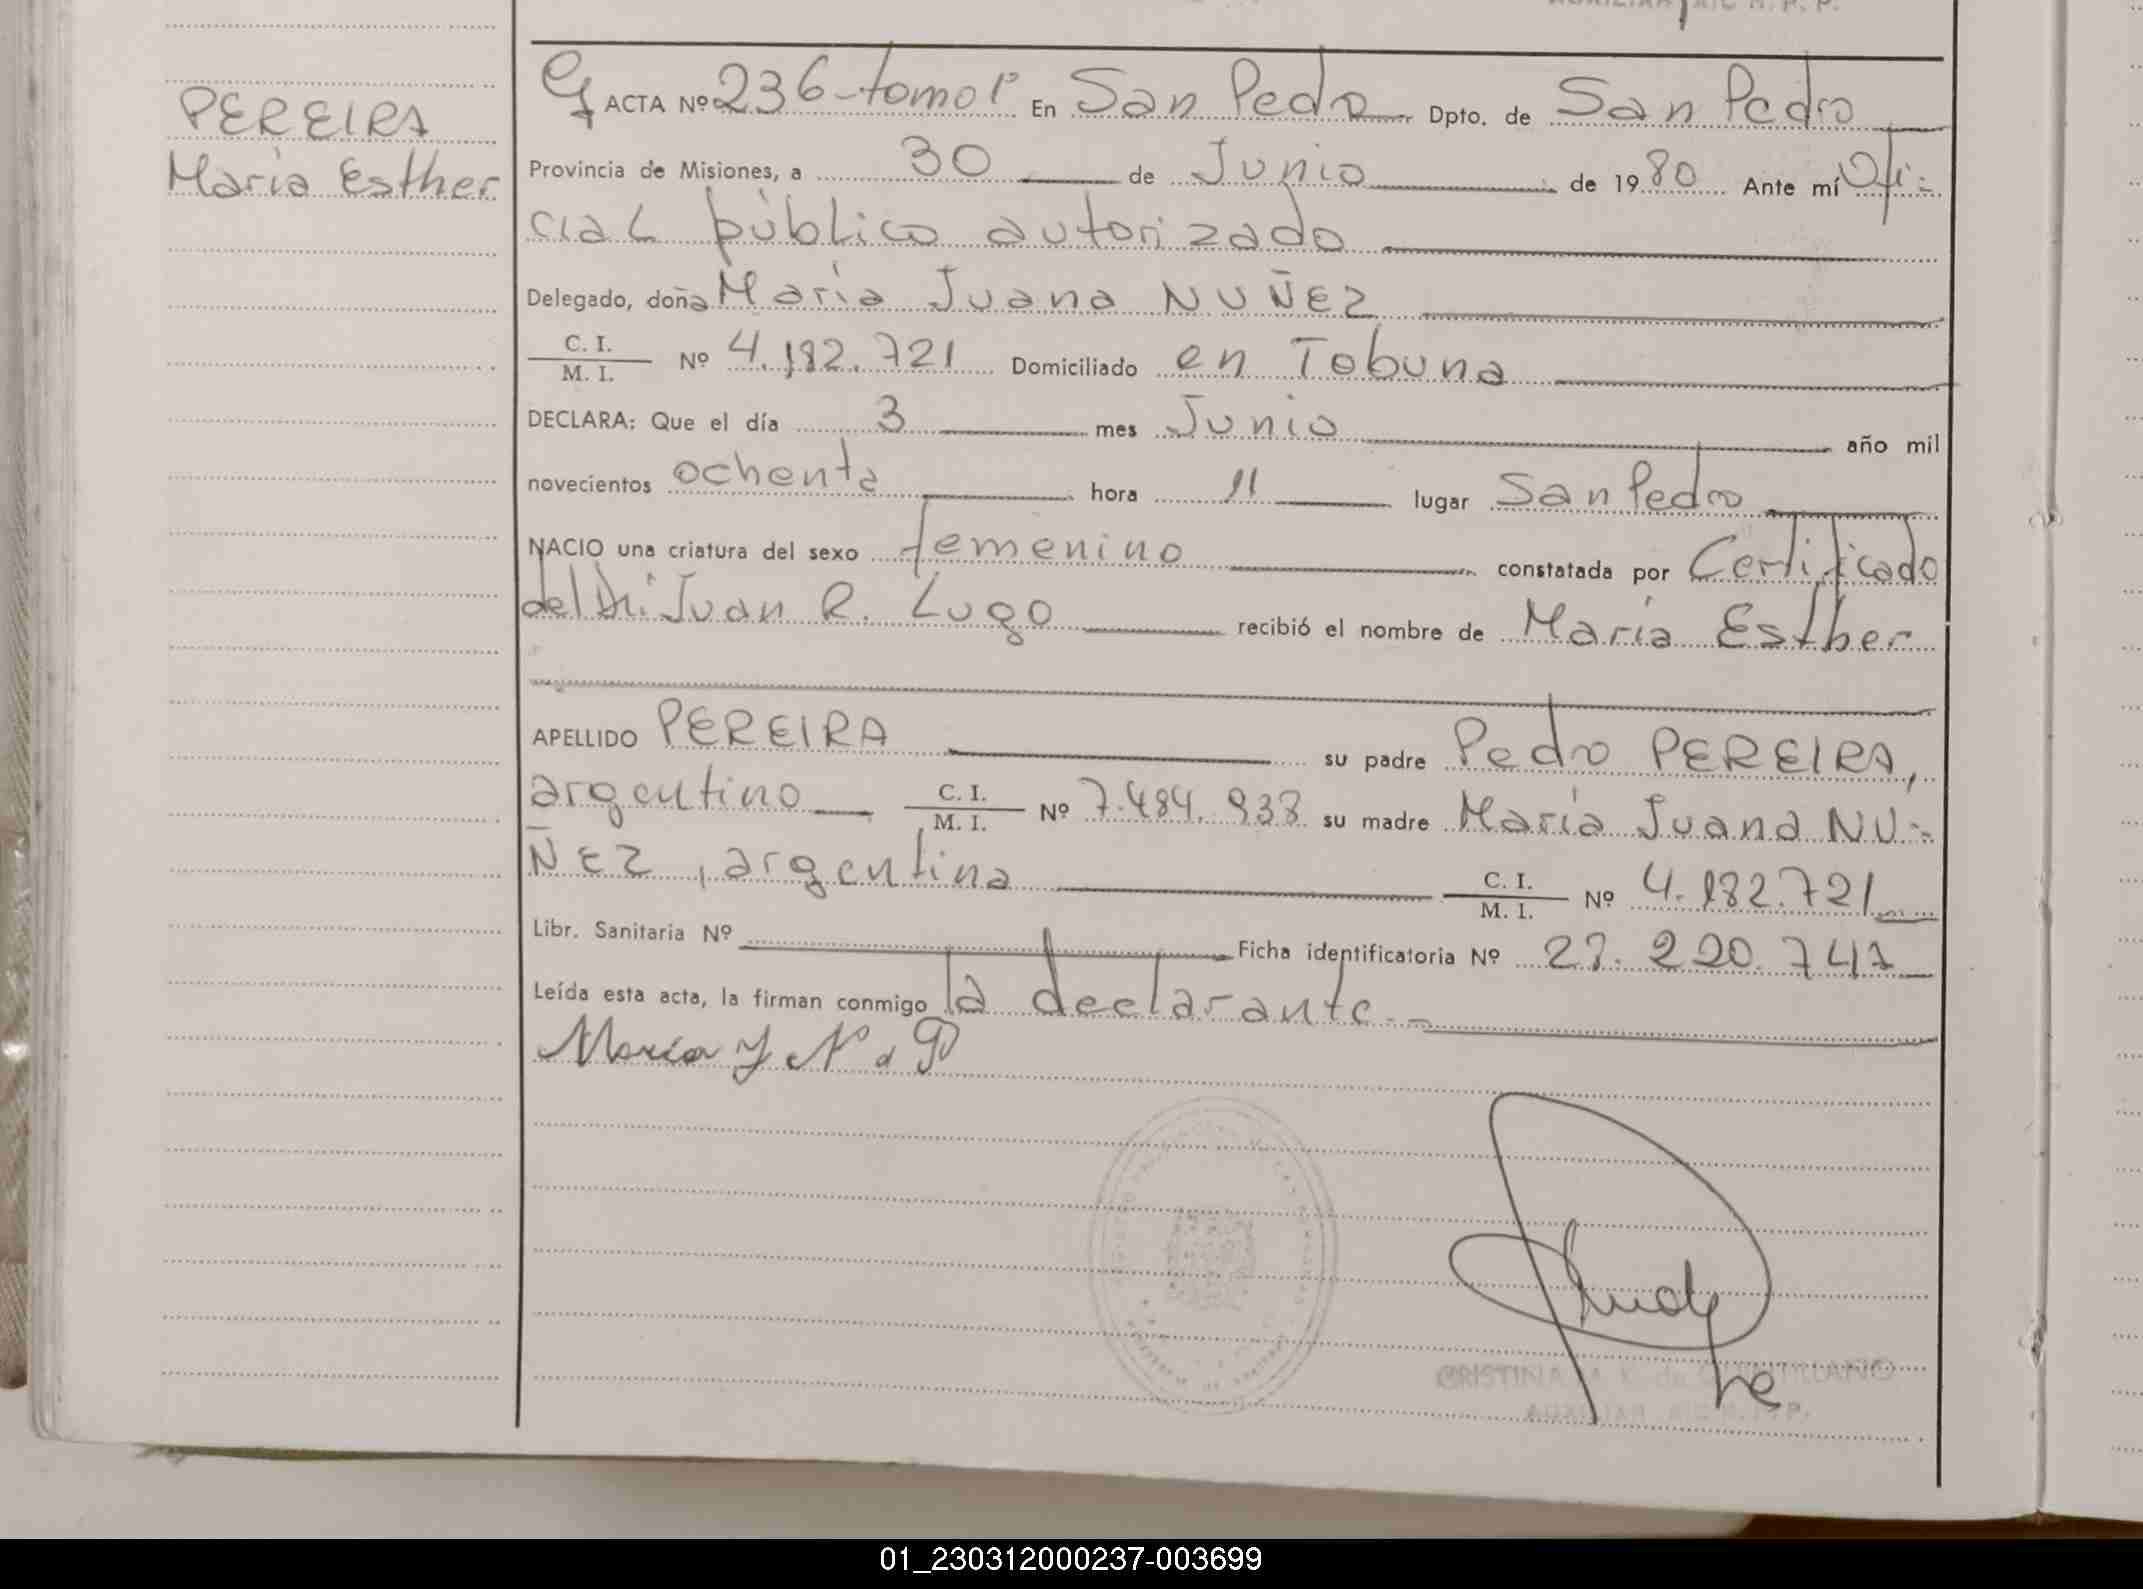 PEREIRA
María Esther
ACTA Nº 236-tomo 1º En San Pedro Dpto. de San Pedro
Provincia de Misiones, a 30 de Junio de 1980 Ante mí Ofi-
cial público autorizado
Delegado, doña María Juana NUÑEZ
C. I.
M. I. Nº 4.182.721 Domiciliado en Tobuna
DECLARA: Que el día 3 mes Junio año mil
novecientos ochenta hora 11 lugar San Pedro
NACIO una criatura del sexo femenino constatada por Certificado
del Dr. Juan R. Lugo recibió el nombre de María Esther
APELLIDO PEREIRA su padre Pedro PEREIRA,
argentino C. I.
M. I. Nº 7.484.938 su madre María Juana NU-
ÑEZ, argentina C. I.
M. I. Nº 4.182.721
Libr. Sanitaria Nº Ficha identificatoria Nº 28.220.741
Leída esta acta, la firman conmigo la declarante.-
María J N d P
CRISTINA
AUXILIAR
01_230312000237-003699